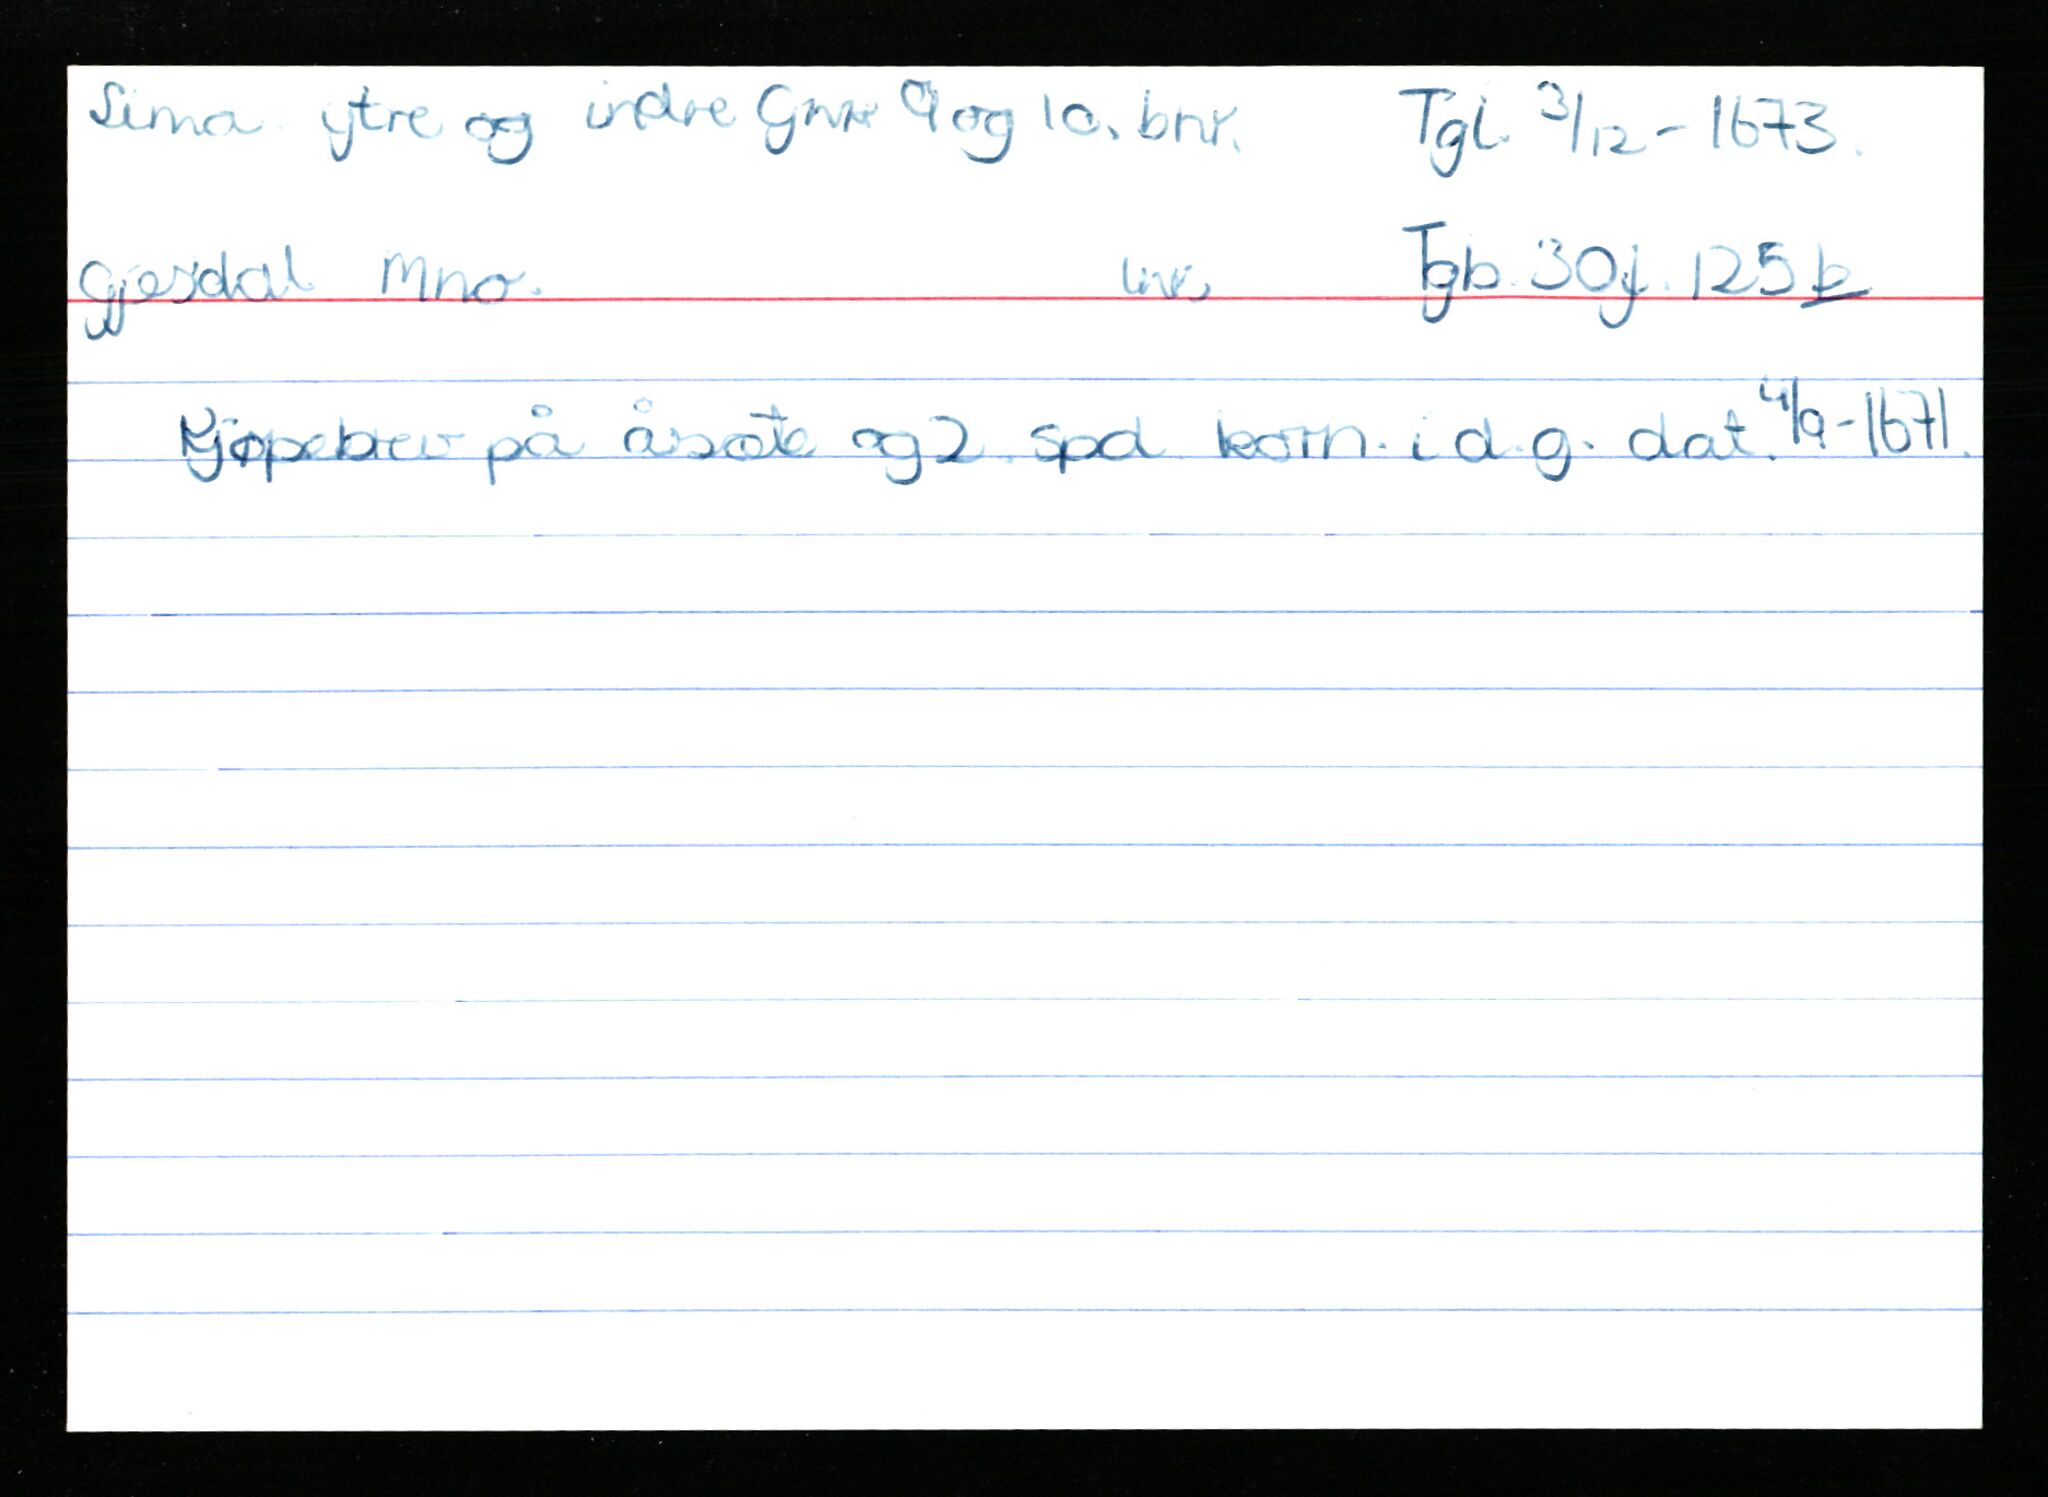 Sima ytre og indre Gnr. 9 og 10. bnr. Tgl. 3/12-1673.
Gjesdal Mno. lnr. Tgb. 30j. 125b
Kjøpebrev på åsæte og 2 spd korn. i d.g. dat. 4/9-1671.